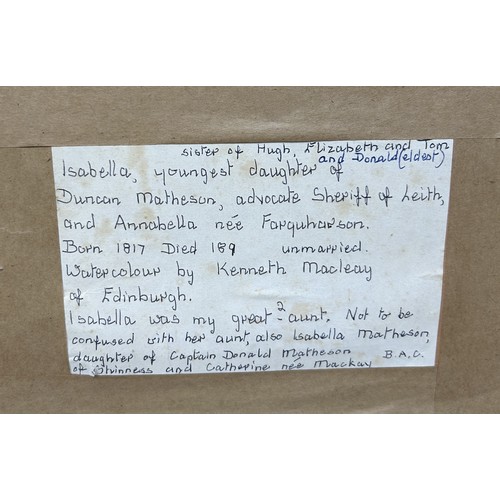 sister of Hugh, Elizabeth and Tom
and Donald (eldest)
Isabella, youngest daughter of
Duncan Matheson, advocate Sheriff of Leith,
and Annabella née Farquharson.
Born 1817 Died 189 unmarried.
Watercolour by Kenneth Macleay
of Edinburgh.
Isabella was my great-²aunt. Not to be
confused with her aunt, also Isabella Matheson,
daughter of Captain Donald Matheson B.A.C.
of Shinness and Catherine née Mackay